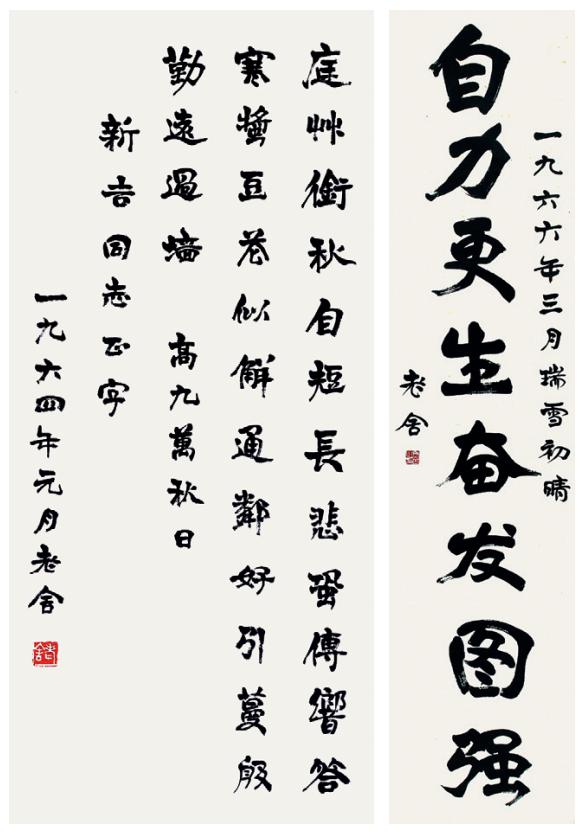 一九六六年三月瑞雪初晴
自力更生奋发图强
老舍
庭艸銜秋自短長悲蛩傳響答
寒螿豆花似解通鄰好引蔓殷
勤遠過墻 高九萬秋日
新吉同志正字
一九六四年元月老舍
老舍